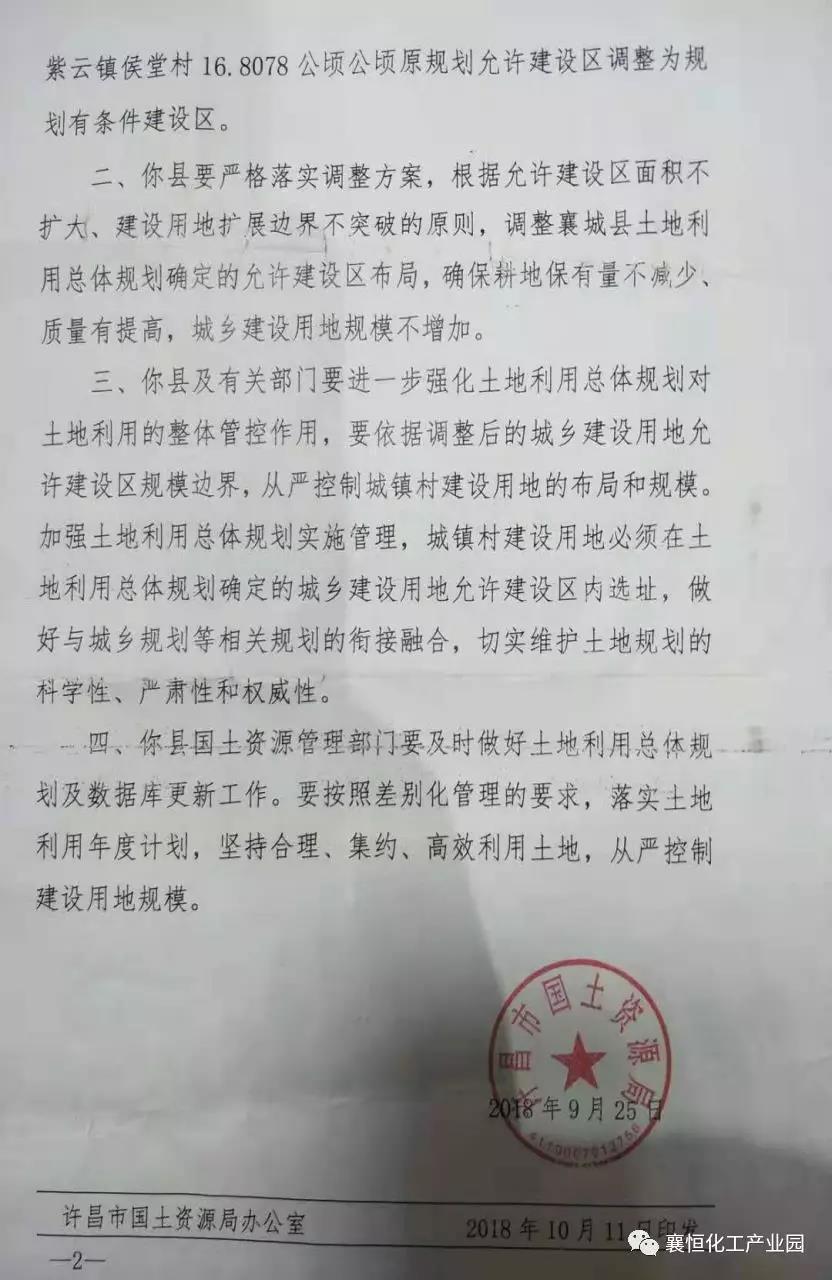 紫云镇侯堂村16.8078公顷公顷原规划允许建设区调整为规
划有条件建设区。
二、你县要严格落实调整方案，根据允许建设区面积不
扩大、建设用地扩展边界不突破的原则，调整襄城县土地利
用总体规划确定的允许建设区布局，确保耕地保有量不减少、
质量有提高，城乡建设用地规模不增加。
三、你县及有关部门要进一步强化土地利用总体规划对
土地利用的整体管控作用，要依据调整后的城乡建设用地允
许建设区规模边界，从严控制城镇村建设用地的布局和规模。
加强土地利用总体规划实施管理，城镇村建设用地必须在土
地利用总体规划确定的城乡建设用地允许建设区内选址，做
好与城乡规划等相关规划的衔接融合，切实维护土地规划的
科学性、严肃性和权威性。
四、你县国土资源管理部门要及时做好土地利用总体规
划及数据库更新工作。要按照差别化管理的要求，落实土地
利用年度计划，坚持合理、集约、高效利用土地，从严控制
建设用地规模。
许昌市国土资源局
2018年9月25日
许昌市国土资源局办公室 2018年10月11日印发
襄恒化工产业园
—2—